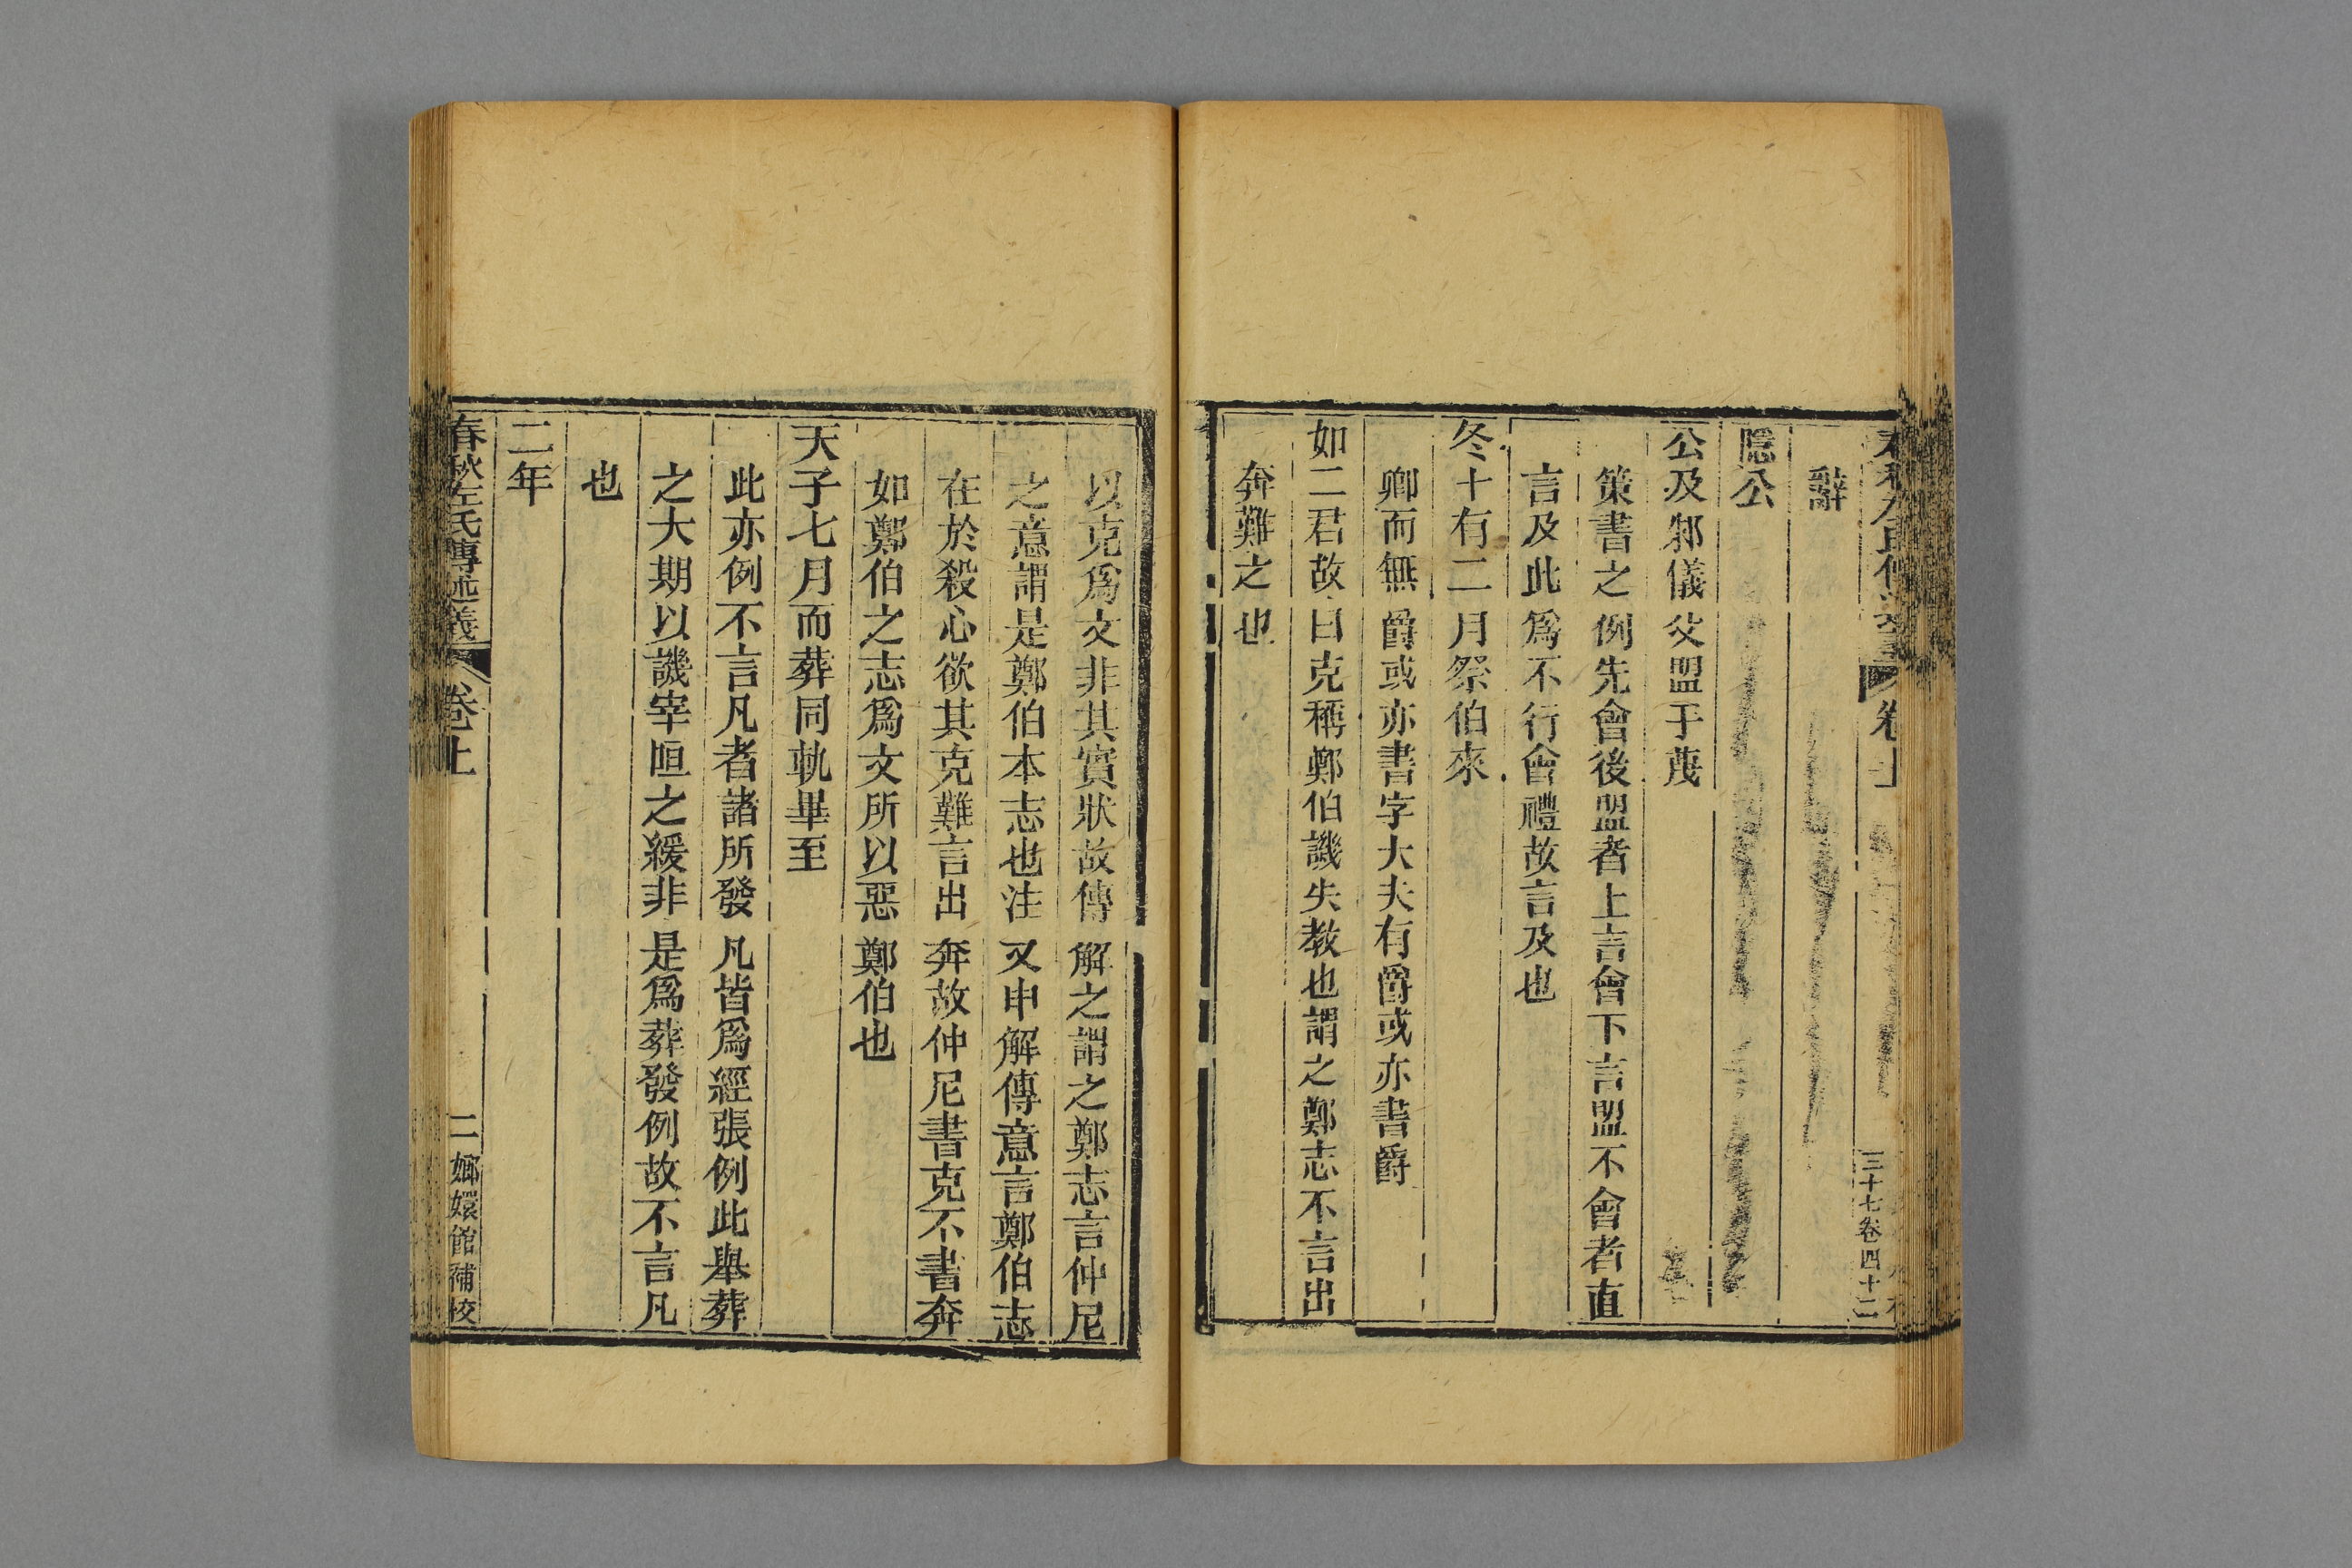 卷上
三十七卷四十二
辭
隱公
公及邾儀父盟于蔑
策書之例先會後盟者上言會下言盟不會者直
言及此爲不行會禮故言及也
冬十有二月祭伯來
卿而無爵或亦書字大夫有爵或亦書爵
如二君故曰克稱鄭伯譏失教也謂之鄭志不言出
奔難之也
以克爲文非其實狀故傳解之謂之鄭志言仲尼
之意謂是鄭伯本志也注又申解傳意言鄭伯志
在於殺心欲其克難言出奔故仲尼書克不書奔
如鄭伯之志爲文所以惡鄭伯也
天子七月而葬同軌畢至
此亦例不言凡者諸所發凡皆爲經張例此舉葬
之大期以譏宰咺之緩非是爲葬發例故不言凡
也
二年
春秋左氏傳述義 卷上 二 嫏嬛館補校